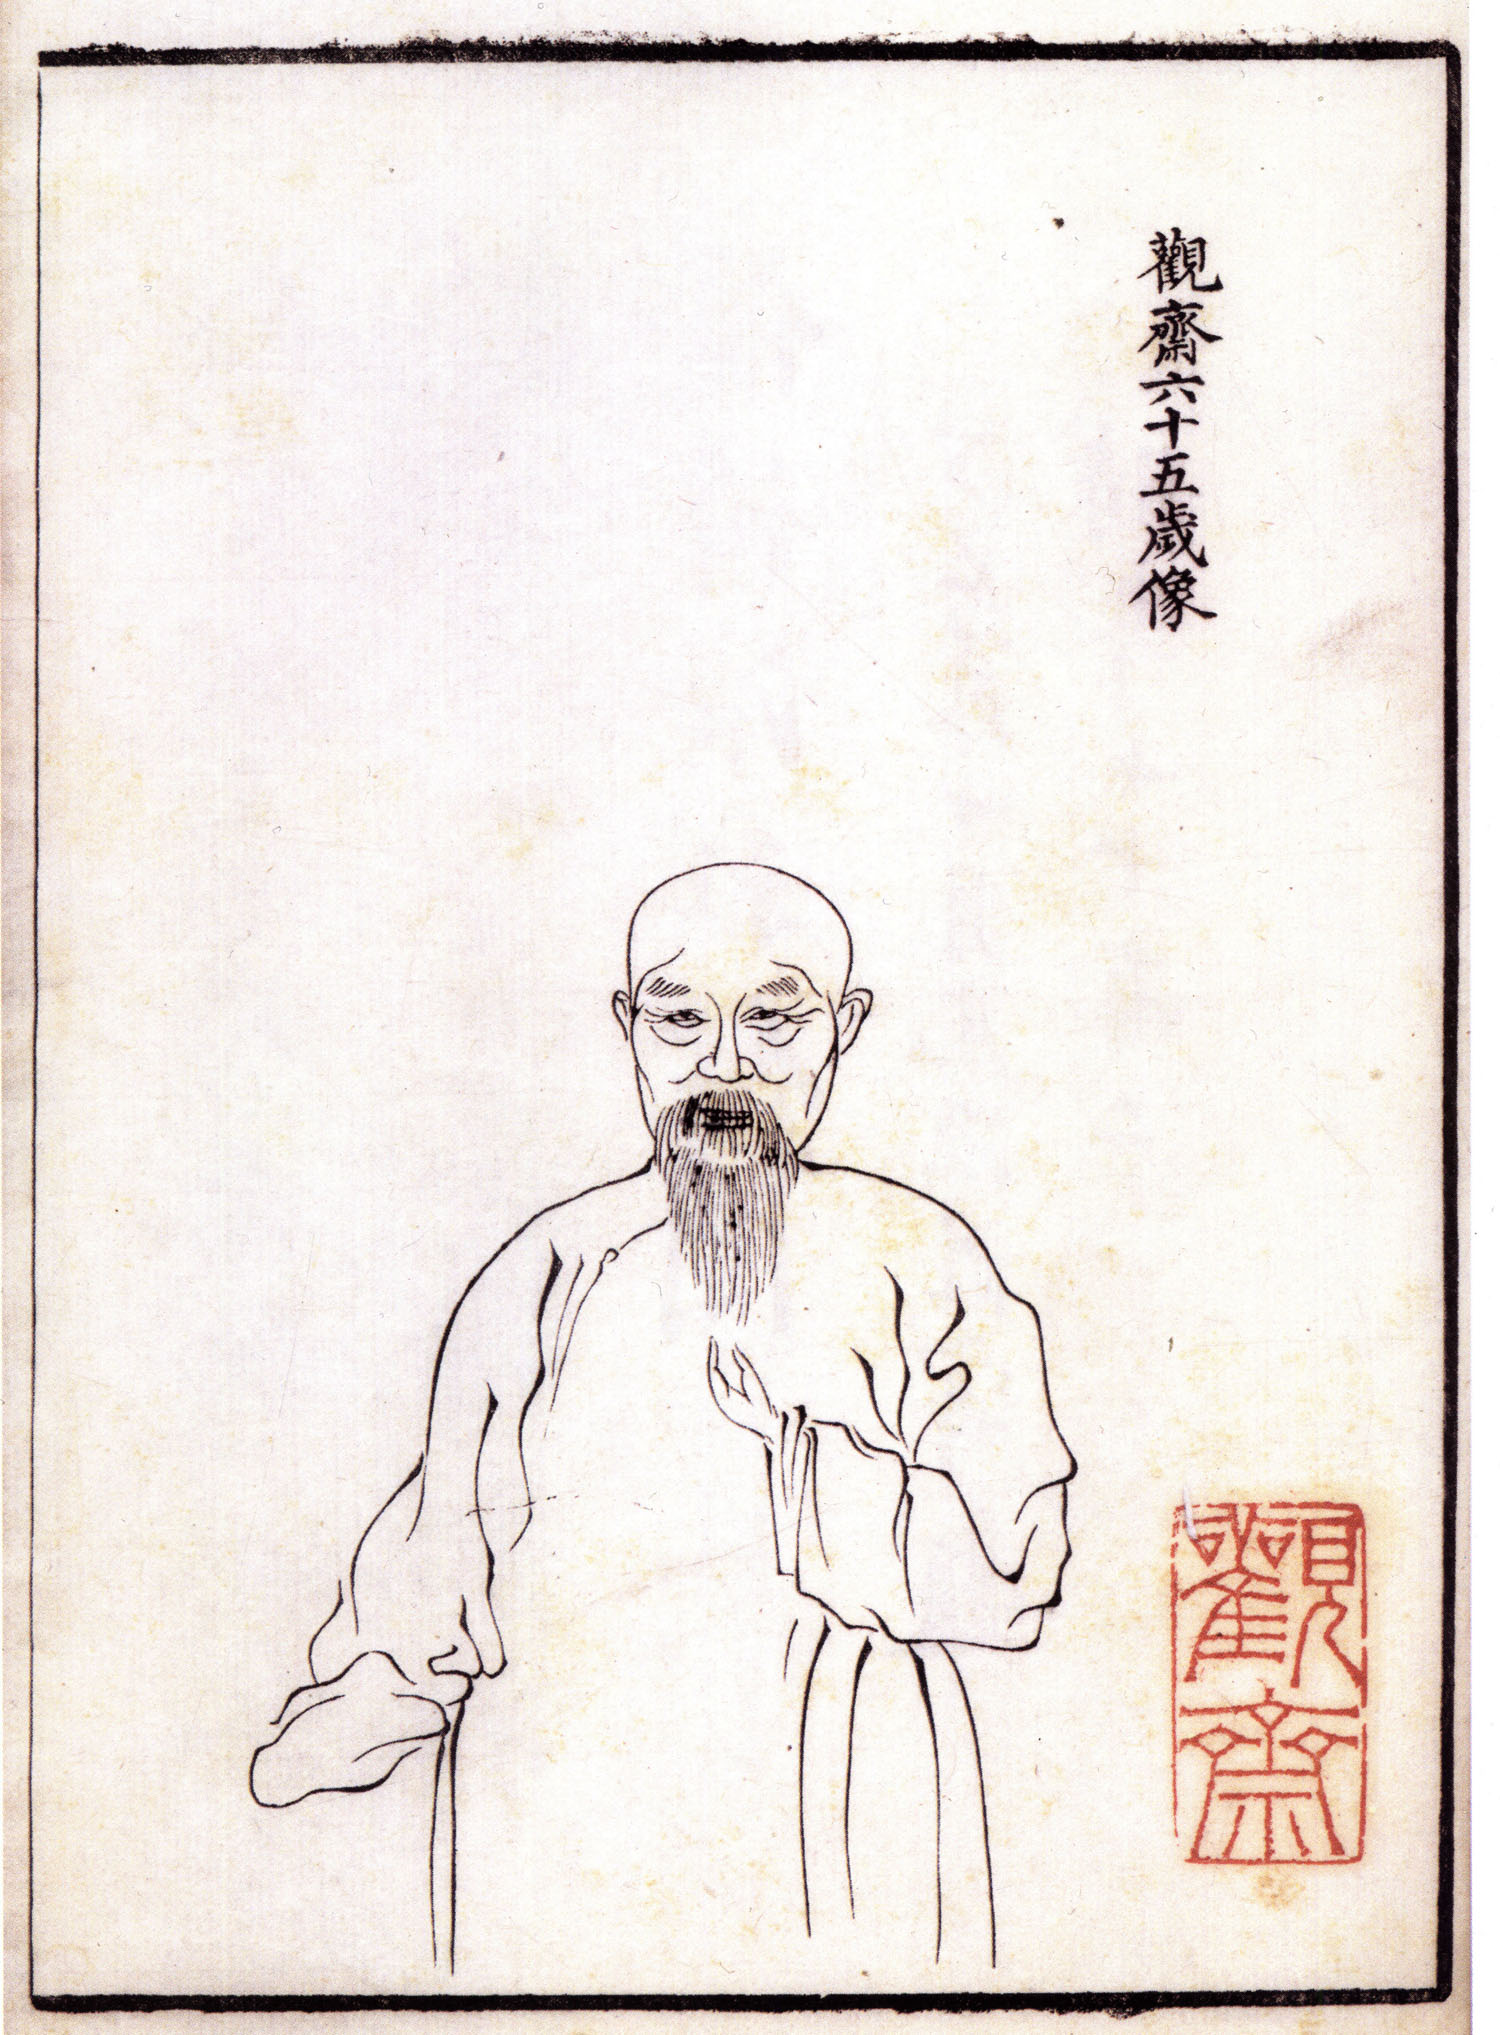 觀齋六十五歲像
觀齋